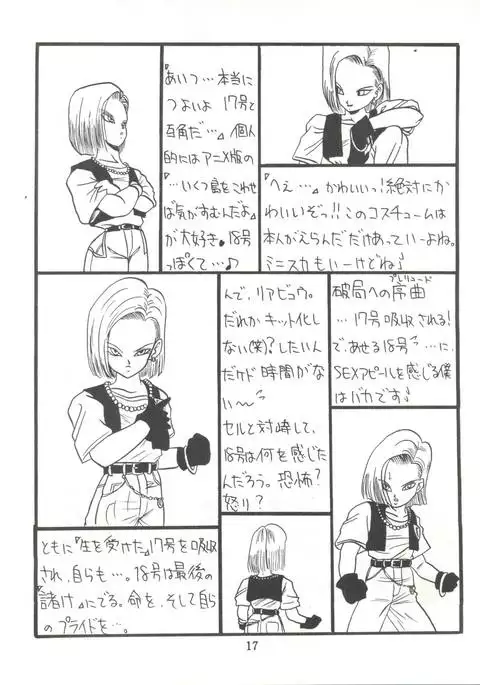 『あいつ…本当に
つよいよ 17号と
互角だ…』個人
的にはアニメ版の
『…いくつ島をこわせ
ば気がすむんだよ』
が大好き。18号
っぽくて…♪
『へえ…』かわいいっ!絶対にか
わいいぞっ!!このコスチュームは
本人がえらんだだけあっていーよね。
ミニスカもいーけどね♪
んで、リアビュウ。
だれかキット化し
ない(笑)?したいん
だケド時間がな
い〜
セルと対峙して、
18号は何を感じた
んだろう。恐怖?
怒り?
プレリュード
破局への序曲
…17号吸収される!
で、あせる18号…に、
SEXアピールを感じる僕
はバカです♪
ともに『生を受けた』17号を吸収
され、自らも…。18号は最後の
『諸け』にでる。命を、そして自らの
プライドを…。
17